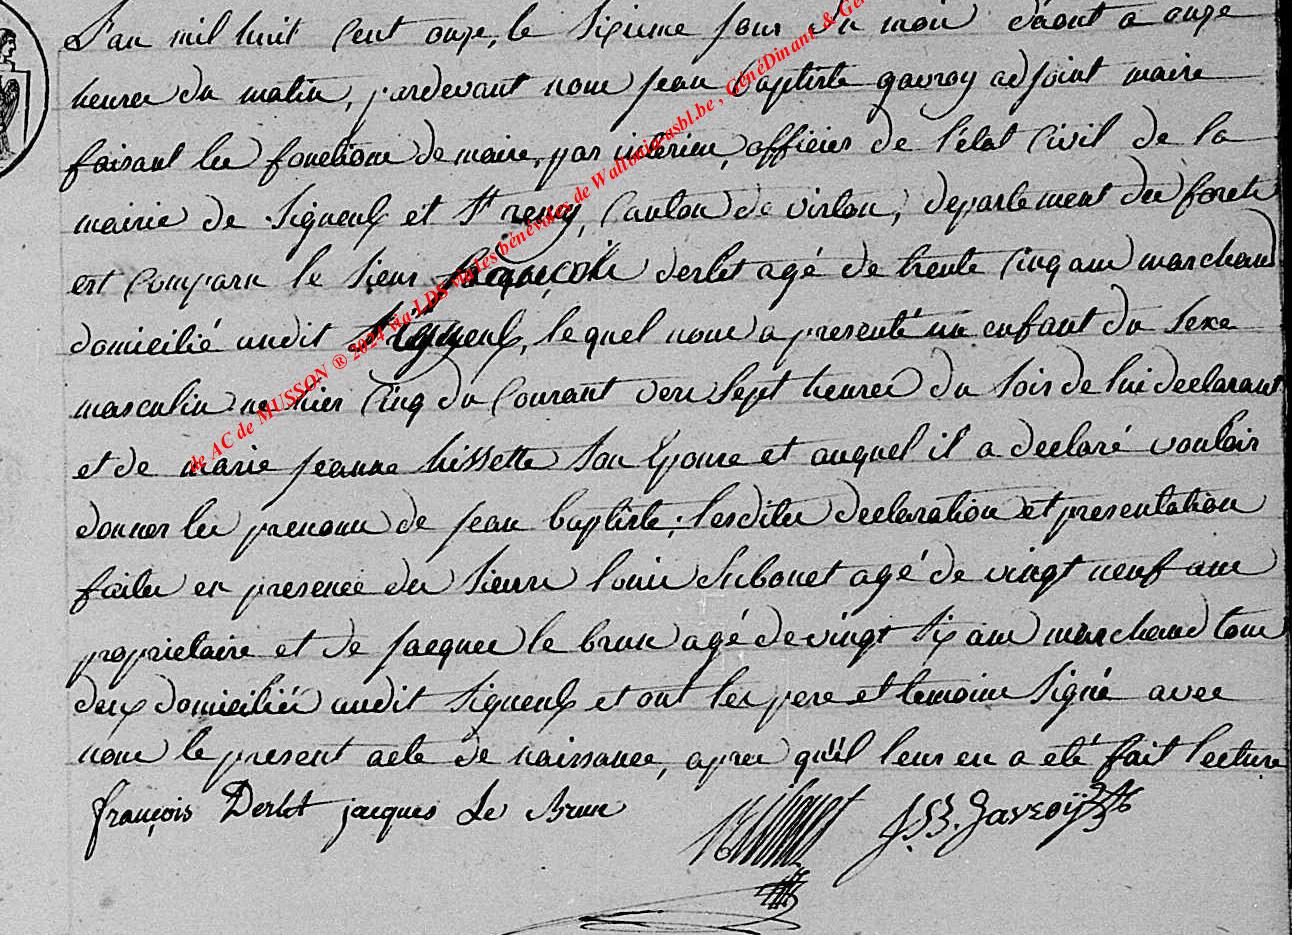 L'an mil huit Cent onze, le Sixieme jour du mois d'aout a onze
heures du matin, pardevant nous jean baptiste gavroy adjoint maire
faisant les fonctions de maire, par interim, officier de l'état Civil de la
mairie de Signeulx et St remy, Canton de virton, departement des forets
est Comparu le Sieur françois derlet agé de trente Cinq ans marchand
domicilié audit Signeulx, lequel nous a presenté un enfant du Sexe
masculin né hier Cinq du Courant vers Sept heures du Soir de lui declarant
et de marie jeanne hissette Son Epouse et auquel il a declaré vouloir
donner les prenoms de jean baptiste; lesdites declaration et presentation
faites en presence des Sieurs louis agé de vingt neuf ans
proprietaire et de jacques le brun agé de vingt Six ans marchand tous
deux domiciliés audit Signeulx et ont les pere et temoins Signé avec
nous le present acte de naissance, apres qu'il leur en a été fait lecture
françois Derlet jacques Le Brun J.B. Gavroÿ
de AC de MUSSON ® 2024 via LDS via les bénévoles de Wallonia-asbl.be , GénéDinant & Gé